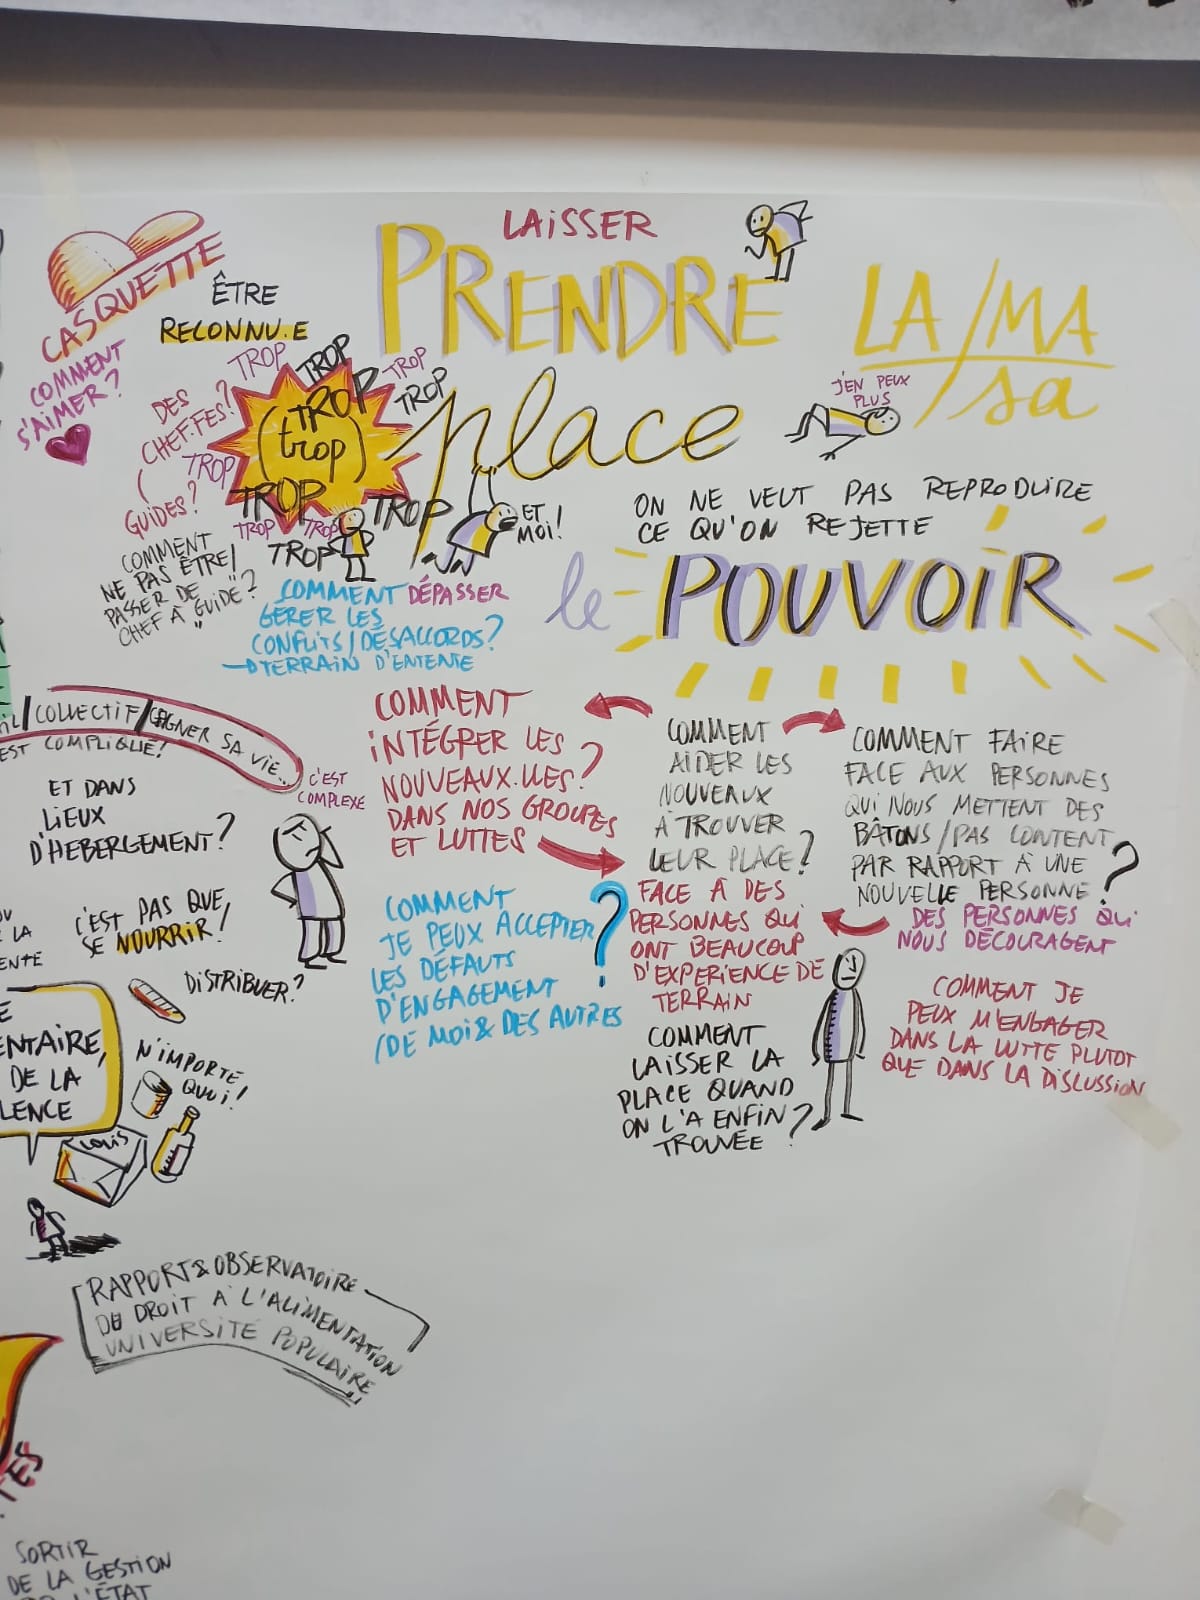 LAISSER
PRENDRE
LA/MA
sa
place
CASQUETTE
COMMENT
S'AIMER?
ÊTRE
RECONNU.E
TROP
TROP
TROP
TROP
TROP
(trop)
TROP
TROP
TROP
TROP
TROP
TROP
TROP
DES
CHEF.FES?
GUIDES?
COMMENT
NE PAS ÊTRE/
PASSER DE
CHEF À "GUIDE"?
ET
MOI!
J'EN PEUX
PLUS
ON NE VEUT PAS REPRODUIRE
CE QU'ON REJETTE
le POUVOIR
COMMENT DÉPASSER
GÉRER LES
CONFLITS/DÉSACCORDS?
TERRAIN D'ENTENTE
/COLLECTIF/GAGNER SA VIE...
EST COMPLIQUÉ!
C'EST
COMPLEXE
ET DANS
LIEUX
D'HEBERGEMENT?
C'EST PAS QUE
SE NOURRIR!
DISTRIBUER?
N'IMPORTE
QUOI!
ENTAIRE,
DE LA
LENCE
COLIS
COMMENT
INTÉGRER LES
NOUVEAUX.LLES?
DANS NOS GROUPES
ET LUTTES
COMMENT
AIDER LES
NOUVEAUX
À TROUVER
LEUR PLACE?
FACE À DES
PERSONNES QUI
ONT BEAUCOUP
D'EXPERIENCE DE
TERRAIN
COMMENT FAIRE
FACE AUX PERSONNES
QUI NOUS METTENT DES
BÂTONS/PAS CONTENT
PAR RAPPORT À UNE
NOUVELLE PERSONNE?
DES PERSONNES QUI
NOUS DÉCOURAGENT
COMMENT
JE PEUX ACCEPTER
LES DÉFAUTS
D'ENGAGEMENT
(DE MOI & DES AUTRES
?
COMMENT
LAISSER LA
PLACE QUAND
ON L'A ENFIN
TROUVÉE?
COMMENT JE
PEUX M'ENGAGER
DANS LA LUTTE PLUTOT
QUE DANS LA DISCUSSION
RAPPORT & OBSERVATOIRE
DU DROIT À L'ALIMENTATION
UNIVERSITÉ POPULAIRE
SORTIR
DE LA GESTION
L'ÉTAT